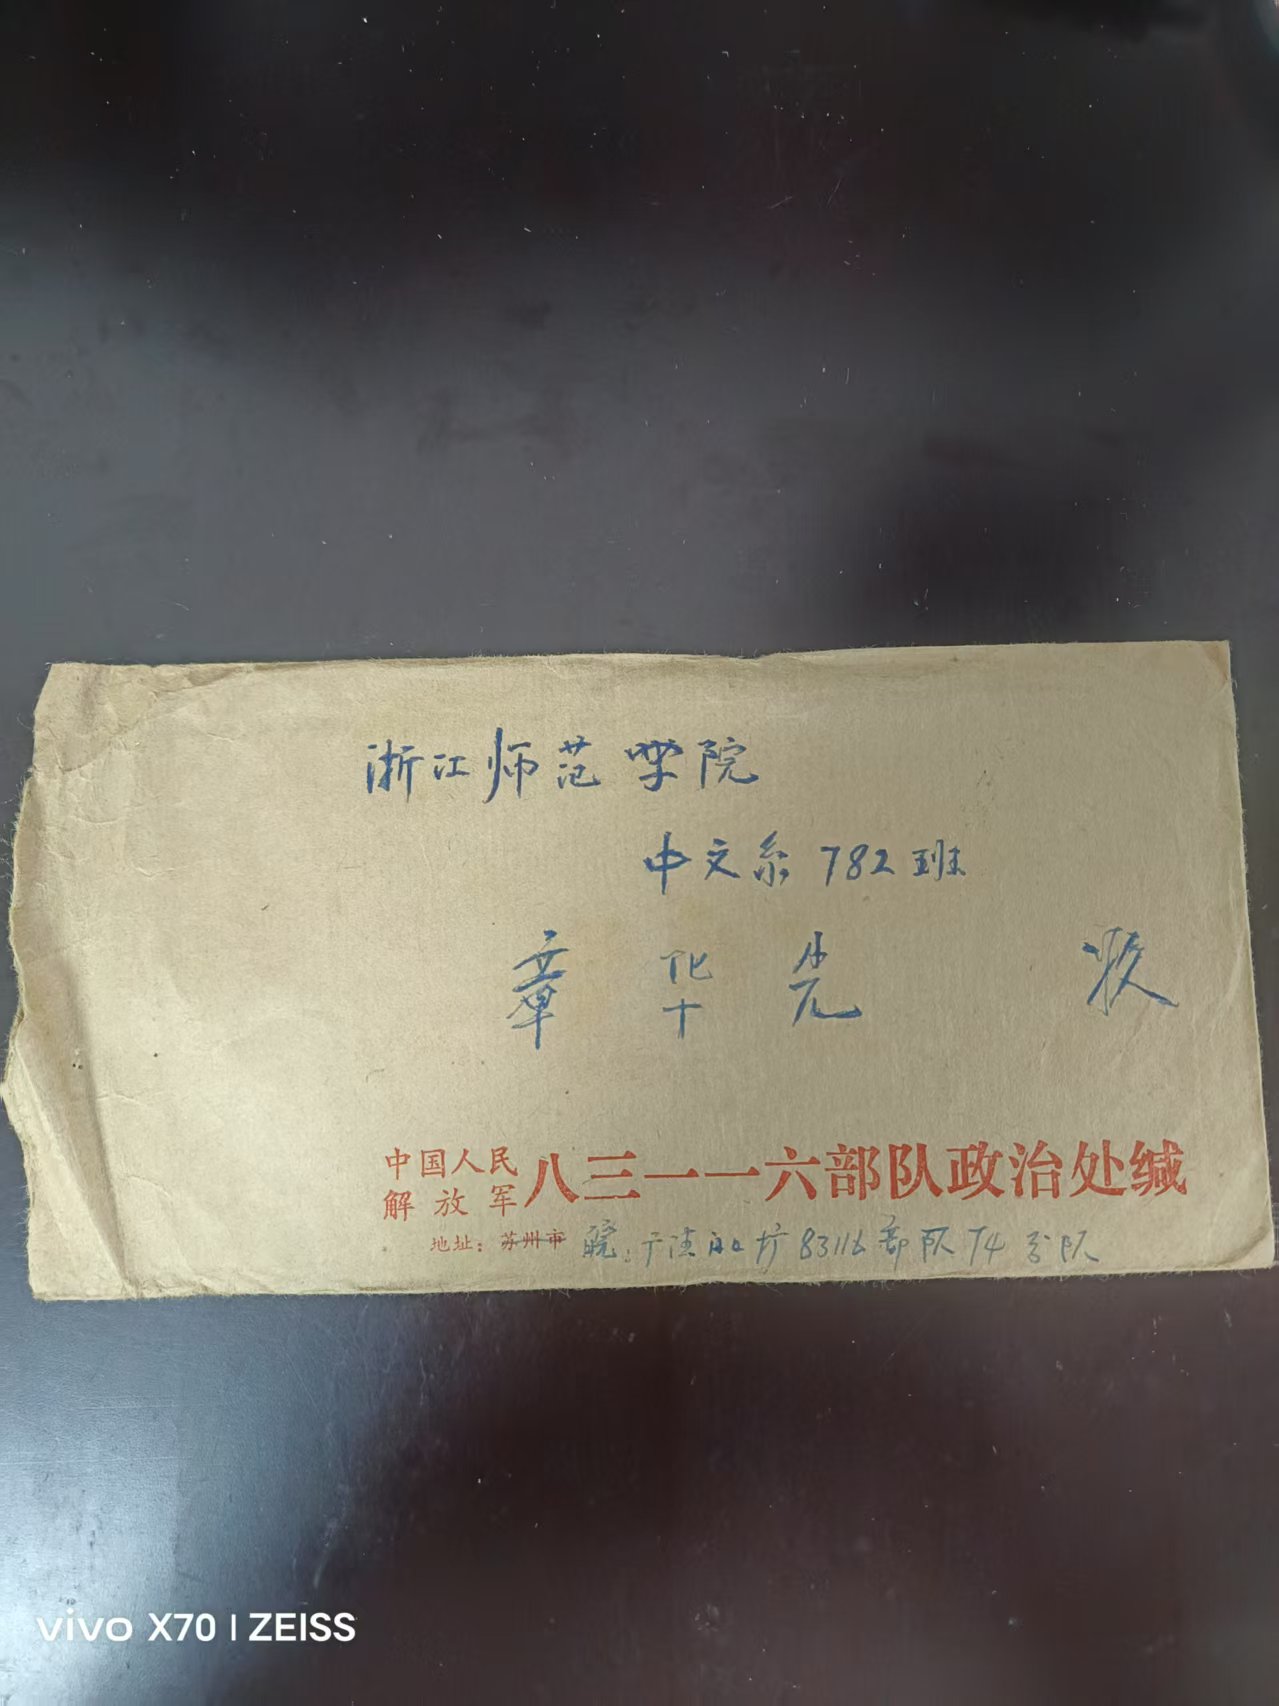 浙江师范学院
中文系782班
章华先 收
中国人民
解放军 八三一一六部队政治处缄
地址：苏州市 皖：广德 83116部队74分队
vivo X70 | ZEISS